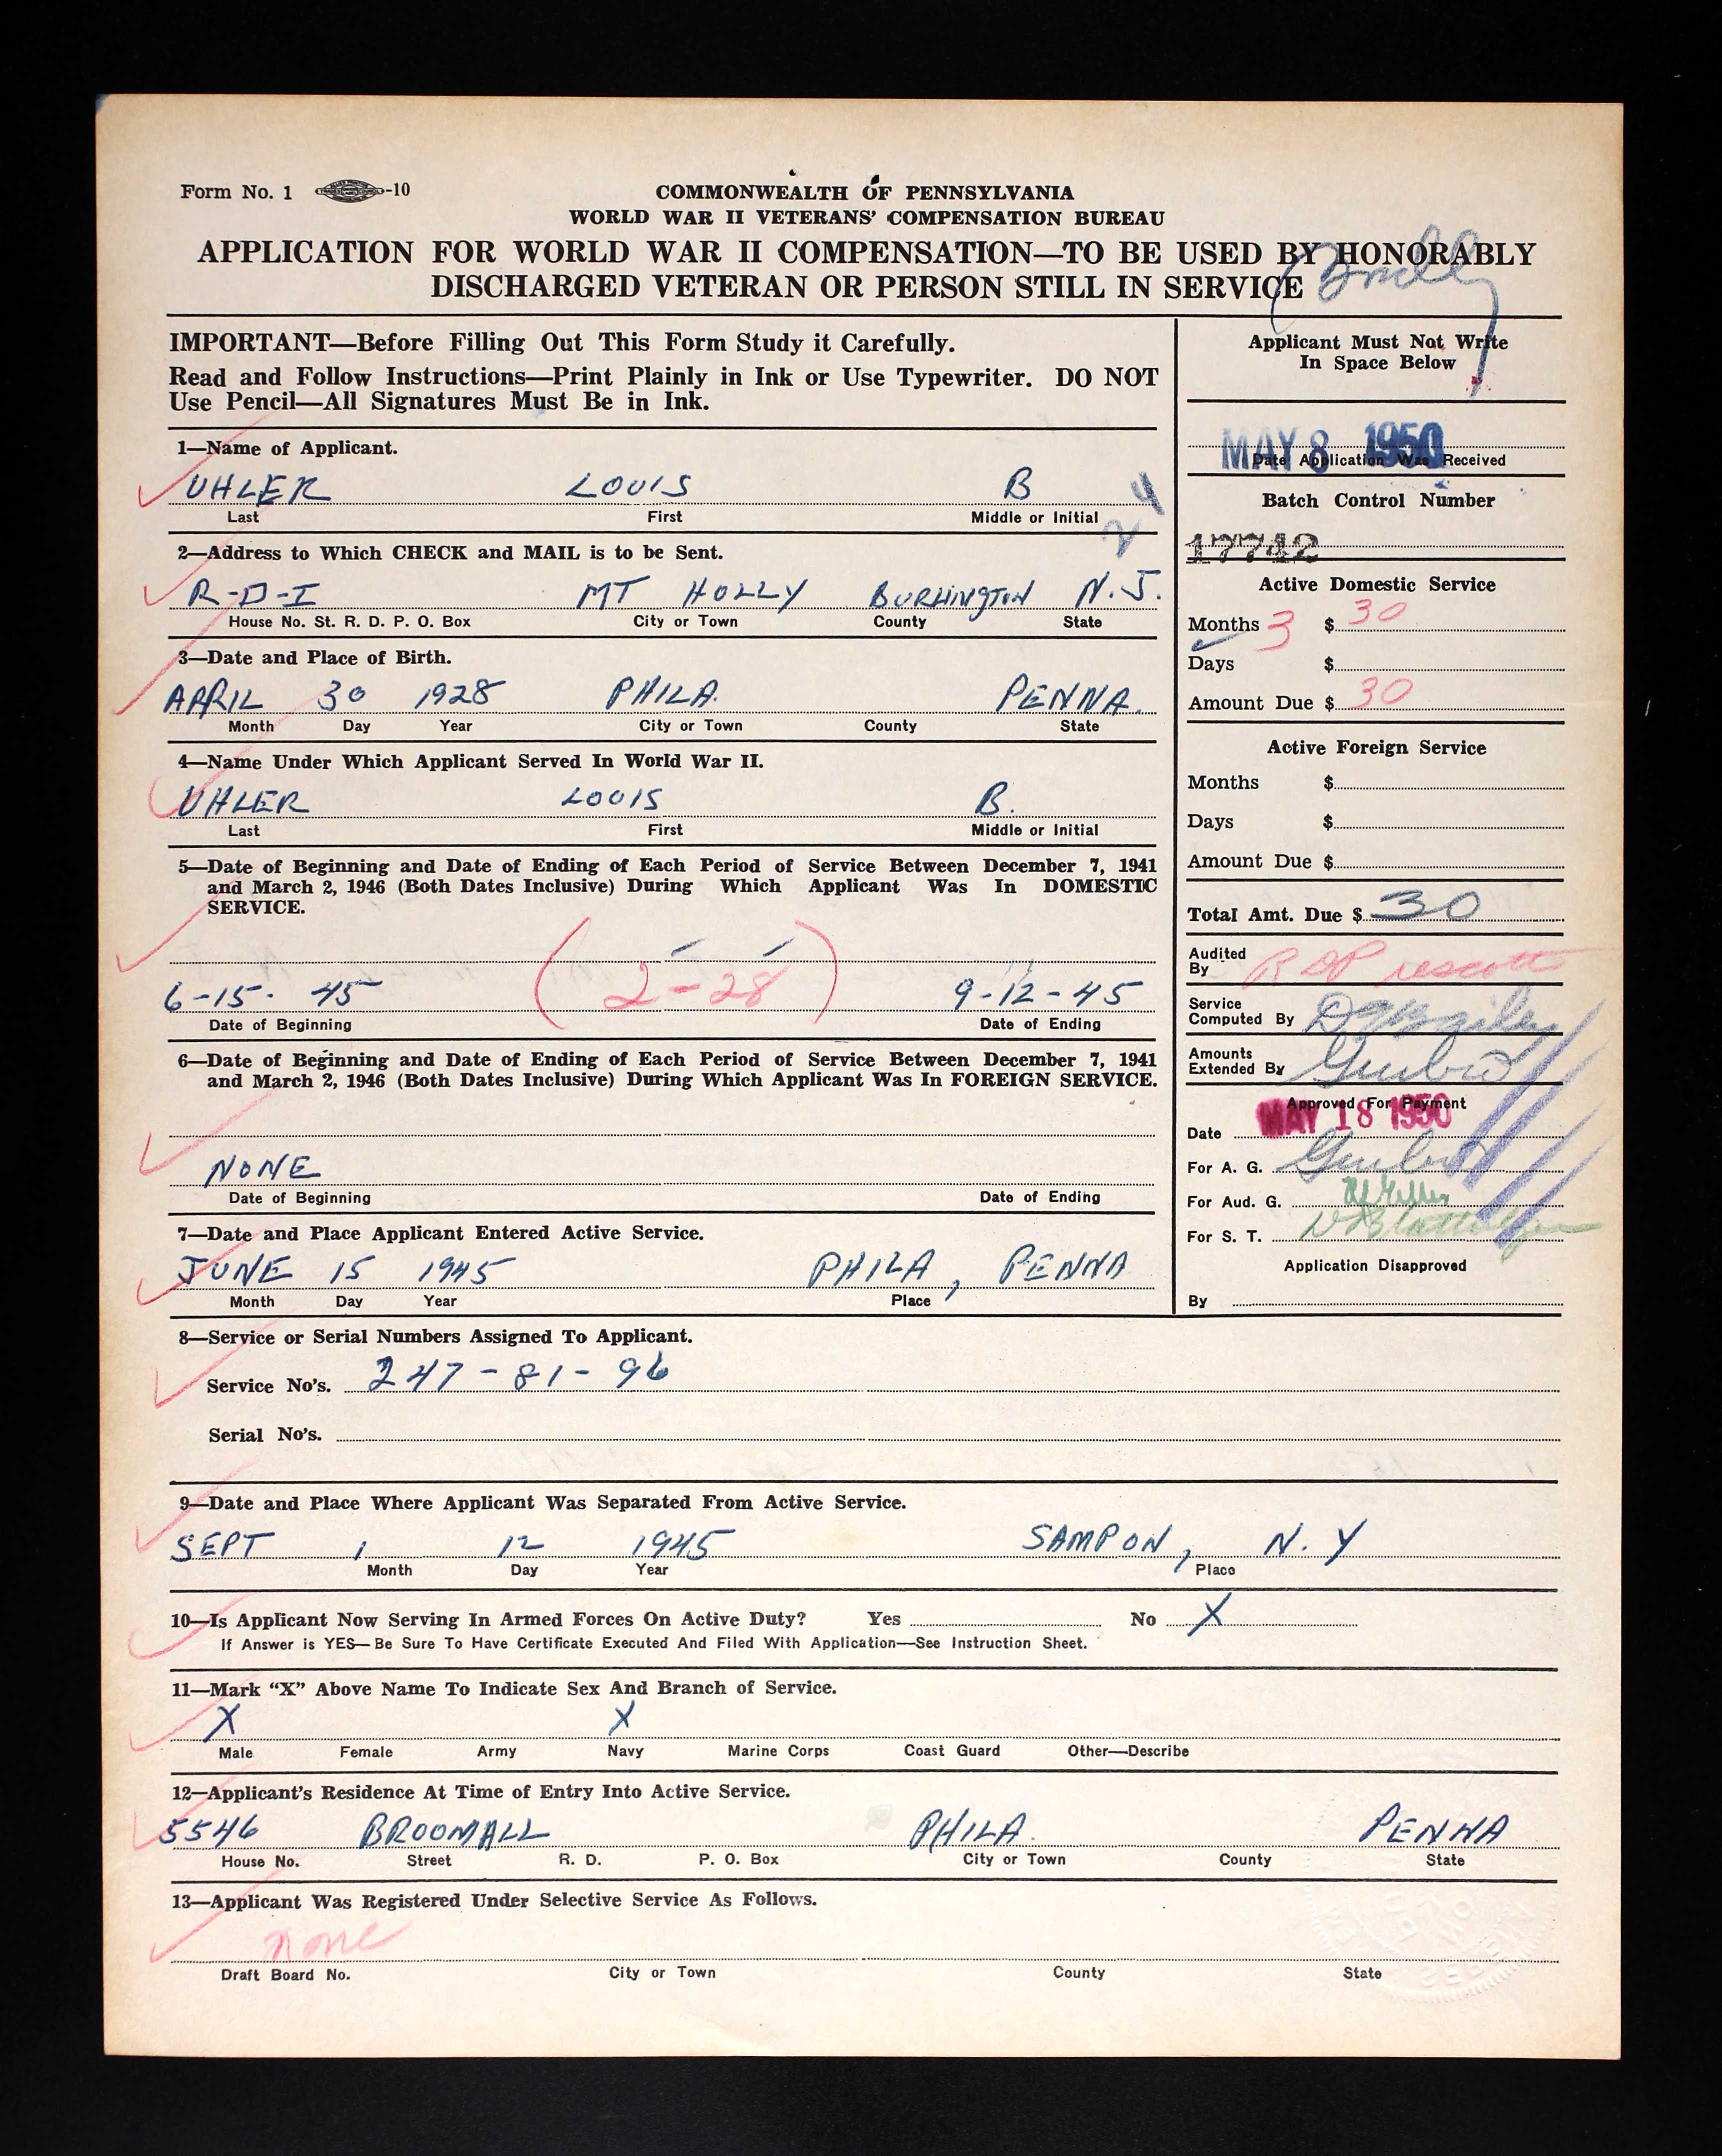 Form No. 1 -10
COMMONWEALTH OF PENNSYLVANIA
WORLD WAR II VETERANS' COMPENSATION BUREAU
APPLICATION FOR WORLD WAR II COMPENSATION—TO BE USED BY HONORABLY
DISCHARGED VETERAN OR PERSON STILL IN SERVICE
IMPORTANT—Before Filling Out This Form Study it Carefully.
Read and Follow Instructions—Print Plainly in Ink or Use Typewriter. DO NOT
Use Pencil—All Signatures Must Be in Ink.
1—Name of Applicant.
UHLER LOUIS B
Last First Middle or Initial
24
2—Address to Which CHECK and MAIL is to be Sent.
R-D-I MT HOLLY BURLINGTON N.J.
House No. St. R. D. P. O. Box City or Town County State
3—Date and Place of Birth.
APRIL 30 1928 PHILA. PENNA.
Month Day Year City or Town County State
4—Name Under Which Applicant Served In World War II.
UHLER LOUIS B.
Last First Middle or Initial
5—Date of Beginning and Date of Ending of Each Period of Service Between December 7, 1941
and March 2, 1946 (Both Dates Inclusive) During Which Applicant Was In DOMESTIC
SERVICE.
6-15-45 (2-28) 9-12-45
Date of Beginning Date of Ending
6—Date of Beginning and Date of Ending of Each Period of Service Between December 7, 1941
and March 2, 1946 (Both Dates Inclusive) During Which Applicant Was In FOREIGN SERVICE.
NONE
Date of Beginning Date of Ending
7—Date and Place Applicant Entered Active Service.
JUNE 15 1945 PHILA, PENNA
Month Day Year Place
Applicant Must Not Write
In Space Below
MAY 8 1950
Date Application Was Received
Batch Control Number
17742
Active Domestic Service
Months 3 $ 30
Days $
Amount Due $ 30
Active Foreign Service
Months $
Days $
Amount Due $
Total Amt. Due $ 30
Audited
By R D Prescott
Service
Computed By
Amounts
Extended By
Approved For Payment
Date MAY 18 1950
For A. G.
For Aud. G.
For S. T.
Application Disapproved
By
8—Service or Serial Numbers Assigned To Applicant.
Service No's. 247-81-96
Serial No's.
9—Date and Place Where Applicant Was Separated From Active Service.
SEPT , 12 1945 SAMPON, N.Y
Month Day Year Place
10—Is Applicant Now Serving In Armed Forces On Active Duty? Yes No X
If Answer is YES—Be Sure To Have Certificate Executed And Filed With Application—See Instruction Sheet.
11—Mark "X" Above Name To Indicate Sex And Branch of Service.
X X
Male Female Army Navy Marine Corps Coast Guard Other—Describe
12—Applicant's Residence At Time of Entry Into Active Service.
5546 BROOMALL PHILA. PENNA
House No. Street R. D. P. O. Box City or Town County State
13—Applicant Was Registered Under Selective Service As Follows.
none
Draft Board No. City or Town County State